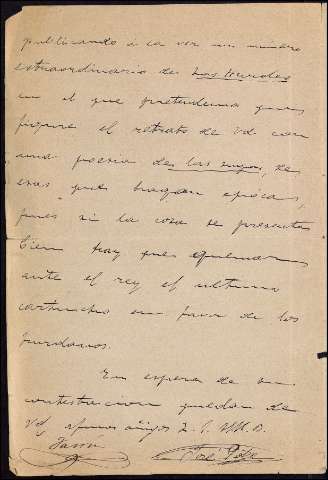 publicando a la vez un número
extraordinario de Las Hurdes
en el que pretendemos que
figure el retrato de Vd con
una poesia de las suyas, de
esas que hagan época,
pues si la cosa se presenta
bien hay que quemar
ante el rey el ultimo
cartucho en favor de los
jurdanos.
En espera de su
contestacion quedan de
Vd
José Polo